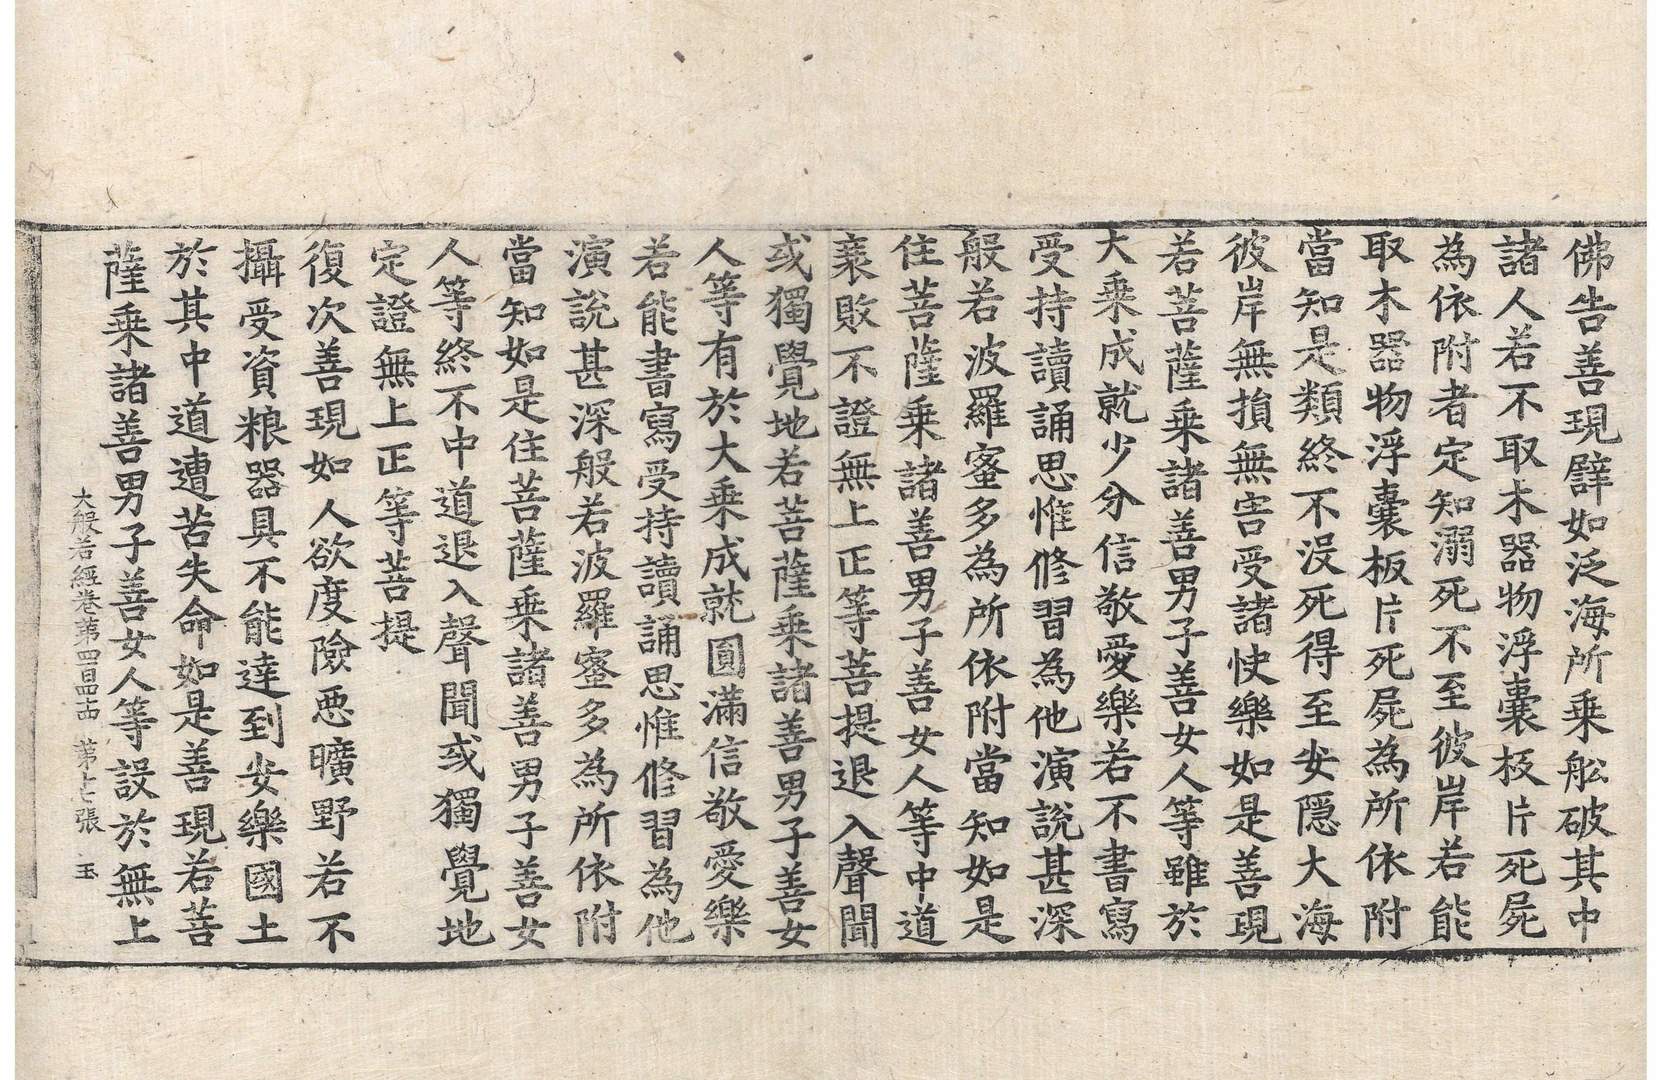 佛告善現譬如泛海所乗舩破其中
諸人若不取木器物浮囊板片死屍
為依附者定知溺死不至彼岸若能
取木器物浮囊板片死屍為所依附
當知是類終不没死得至安隱大海
彼岸無損無害受諸快樂如是善現
若菩薩乗諸善男子善女人等雖於
大乗成就少分信敬愛樂若不書寫
受持讀誦思惟修習為他演說甚深
般若波羅蜜多為所依附當知如是
住菩薩乗諸善男子善女人等中道
衰敗不證無上正等菩提退入聲聞
或獨覺地若菩薩乗諸善男子善女
人等有於大乗成就圓滿信敬愛樂
若能書寫受持讀誦思惟修習為他
演說甚深般若波羅蜜多為所依附
當知如是住菩薩乗諸善男子善女
人等終不中道退入聲聞或獨覺地
定證無上正等菩提
復次善現如人欲度險惡曠野若不
攝受資粮器具不能達到安樂國土
於其中道遭苦失命如是善現若菩
薩乗諸善男子善女人等設於無上
大般若經卷第四 第 張